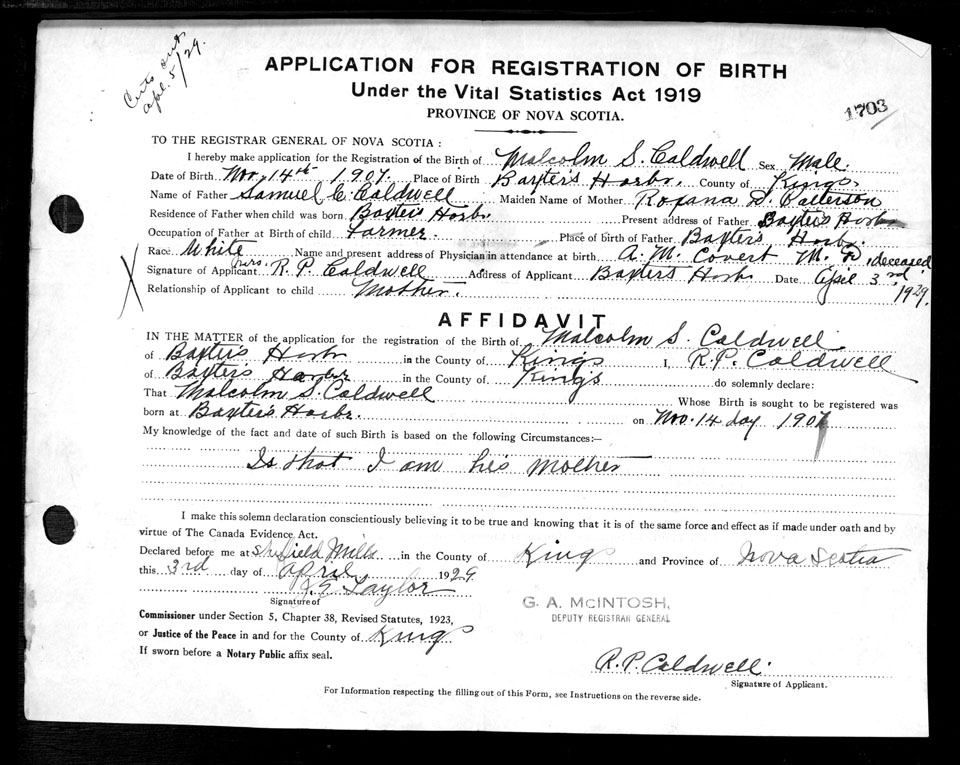 Certs out
Apl. 5/29.
APPLICATION FOR REGISTRATION OF BIRTH
Under the Vital Statistics Act 1919
PROVINCE OF NOVA SCOTIA.
1703
TO THE REGISTRAR GENERAL OF NOVA SCOTIA:
I hereby make application for the Registration of the Birth of Malcolm S. Caldwell Sex Male.
Date of Birth Nov. 14th 1907. Place of Birth Baxter's Harbr. County of Kings
Name of Father Samuel C. Caldwell Maiden Name of Mother Roxana D. Patterson
Residence of Father when child was born Baxters Harbr Present address of Father Baxters Harbr
Occupation of Father at Birth of child Farmer. Place of birth of Father Baxter's Harbr.
Race White Name and present address of Physician in attendance at birth A. M. Covert M. D. deceased
Signature of Applicant Mrs. R. P. Caldwell Address of Applicant Baxters Harbr Date April 3rd, 1929.
Relationship of Applicant to child Mother.
AFFIDAVIT
IN THE MATTER of the application for the registration of the Birth of Malcolm S. Caldwell
of Baxter's Harbr in the County of Kings I, R.P. Caldwell
of Baxter's Harbr in the County of Kings do solemnly declare:
That Malcolm S. Caldwell Whose Birth is sought to be registered was
born at Baxter's Harbr. on Nov. 14 day 1907
My knowledge of the fact and date of such Birth is based on the following Circumstances:—
Is that I am his Mother
I make this solemn declaration conscientiously believing it to be true and knowing that it is of the same force and effect as if made under oath and by
virtue of The Canada Evidence Act.
Declared before me at Sheffield Mills in the County of Kings and Province of Nova Scotia
this 3rd day of April 1929
J. E. Taylor
Signature of
Commissioner under Section 5, Chapter 38, Revised Statutes, 1923,
or Justice of the Peace in and for the County of Kings
If sworn before a Notary Public affix seal.
G. A. McINTOSH,
DEPUTY REGISTRAR GENERAL
R.P. Caldwell.
Signature of Applicant.
For Information respecting the filling out of this Form, see Instructions on the reverse side.